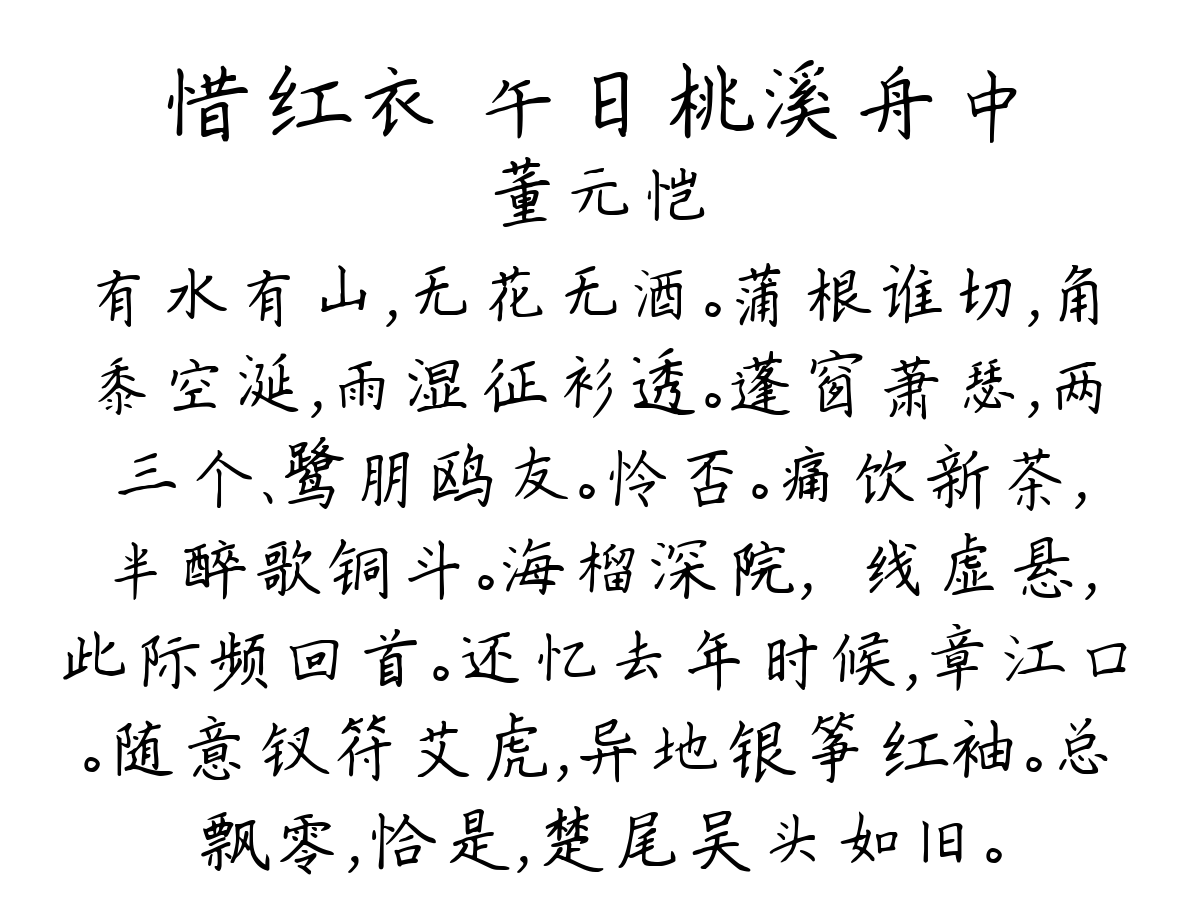 惜红衣 午日桃溪舟中
董元恺
有水有山,无花无酒。蒲根谁切,角
黍空涎,雨湿征衫透。蓬窗萧瑟,两
三个、鹭朋鸥友。怜否。痛饮新茶,
半醉歌铜斗。海榴深院, 线虚悬,
此际频回首。还忆去年时候,章江口
。随意钗符艾虎,异地银筝红袖。总
飘零,恰是,楚尾吴头如旧。